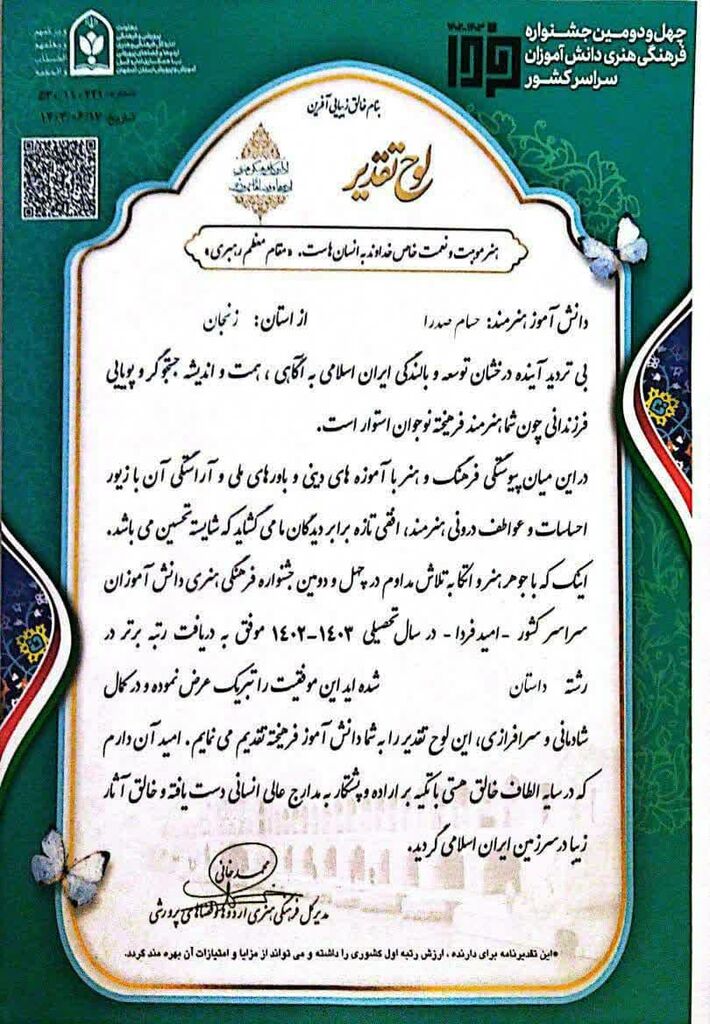 چهل‌ودومین جشنواره
فرهنگی هنری دانش‌آموزان
سراسر کشور
۱۴۰۲-۱۴۰۳
فردا
معاونت
پرورشی و فرهنگی
شماره: ۵۳۰/۱۱۰۲۴۹
تاریخ: ۱۴۰۳/۰۶/۱۷
بنام خالق زیبایی آفرین
لوح تقدیر
هنر موهبت و نعمت خاص خداوند به انسان هاست. «مقام معظم رهبری»
دانش آموز هنرمند: حسام صدرا از استان: زنجان
بی تردید آینده درخشان توسعه و بالندگی ایران اسلامی به آگاهی ، همت و اندیشه جستجوگر و پویایی
فرزندانی چون شما هنرمند فرهیخته نوجوان استوار است.
در این میان پیوستگی فرهنگ و هنر با آموزه های دینی و باورهای ملی و آراستگی آن با زیور
احساسات و عواطف درونی هنرمند، افقی تازه برابر دیدگان ما می گشاید که شایسته تحسین می باشد.
اینک که با جوهر هنر و اتکا به تلاش مداوم در چهل و دومین جشنواره فرهنگی هنری دانش آموزان
سراسر کشور -امید فردا- در سال تحصیلی ۱۴۰۳-۱۴۰۲ موفق به دریافت رتبه برتر در
رشته داستان شده اید این موفقیت را تبریک عرض نموده و در کمال
شادمانی و سرافرازی، این لوح تقدیر را به شما دانش آموز فرهیخته تقدیم می نمایم. امید آن دارم
که در سایه الطاف خالق هستی با تکیه بر اراده و پشتکار به مدارج عالی انسانی دست یافته و خالق آثار
زیبا در سرزمین ایران اسلامی گردید.
محمد خانی
مدیرکل فرهنگی هنری اردوها و فضاهای پرورشی
*این تقدیرنامه برای دارنده ، ارزش رتبه اول کشوری را داشته و می تواند از مزایا و امتیازات آن بهره مند گردد.